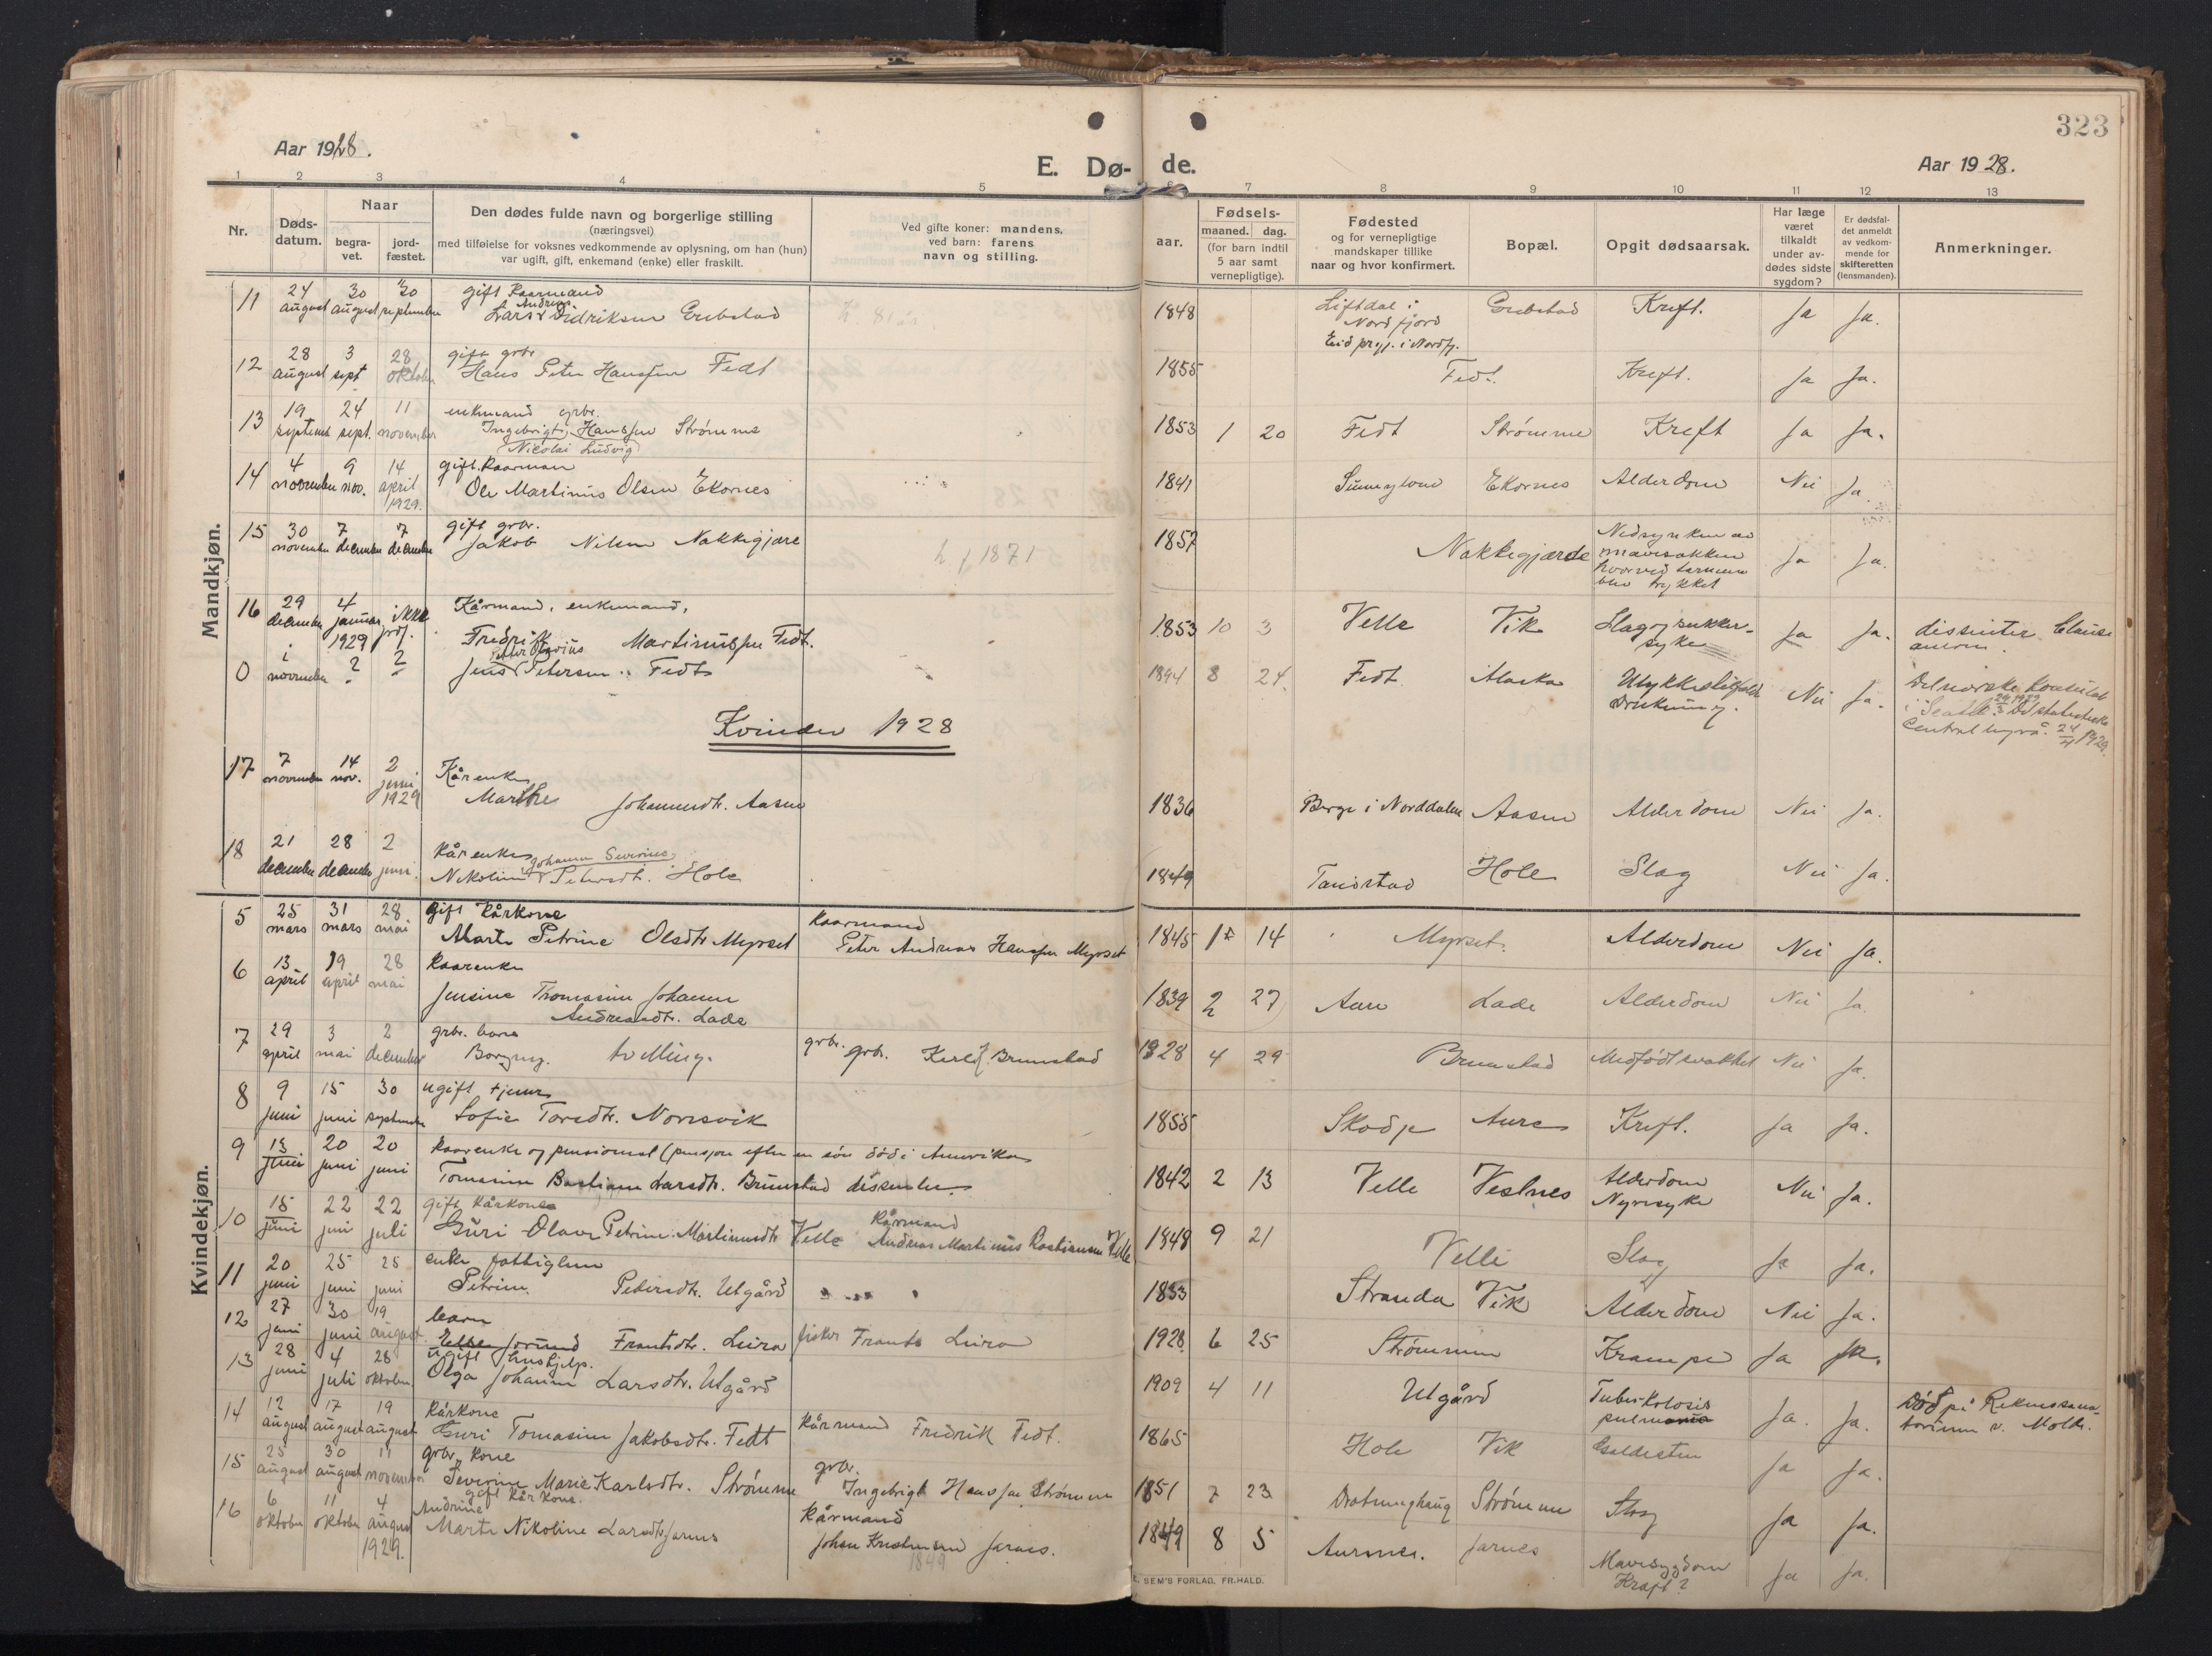 323
Aar 1928.
E. Dø- de.
Aar 1928.
1 2 3 4 5 6 7 8 9 10 11 12 13
Nr.
Døds-
datum.
Naar
begra-
vet.
jord-
fæstet.
Den dødes fulde navn og borgerlige stilling
(næringsvei)
med tilføielse for voksnes vedkommende av oplysning, om han (hun)
var ugift, gift, enkemand (enke) eller fraskilt.
Ved gifte koner: mandens,
ved barn: farens
navn og stilling.
Fødsels-
aar. maaned. dag.
(for barn indtil
5 aar samt
vernepligtige).
Fødested
og for vernepligtige
mandskaper tillike
naar og hvor konfirmert.
Bopæl.
Opgit dødsaarsak.
Har læge
været
tilkaldt
under av-
dødes sidste
sygdom?
Er dødsfal-
det anmeldt
av vedkom-
mende for
skifteretten
(lensmanden).
Anmerkninger.
Mandkjøn.
11 24 august 30 august 30 september gift Kaarmand
Lars Andreas Didriksen Grebstad 1848 Liftdal i Nordfjord Grebstad Kreft. Ja Ja.
Eid prgj. i Nordfj.
12 28 august 3 sept 28 oktober gift grbr
Hans Peter Hanssen Fedt 1855 Fedt. Kreft. Ja Ja.
13 19 septemb 24 sept. 11 november enkmand grbr.
Ingebrigt Hanssen Strømme 1853 1 20 Fedt Strømme Kreft Ja Ja.
Nicolai Ludvig
14 4 november 9 nov. 14 april 1929. gift. Kaarman
Ole Martinus Olsen Ekornes 1841 Ekornes Alderdom Nei Ja.
15 30 november 7 december 7 december gift grbr.
Jakob Nilsen Nakkegjære 1857 Nakkegjærde Nedsynken av mavesækken Ja Ja.
hvorved tarmene blev trykket
16 29 december 4 januar 1929 ikke Kårmand, enkemand,
Fredrik Martinussen Fedt. 1853 10 3 Velle Vik Slag, sukkersyke Ja Ja. dissenter.
0 i november ? ? Jens Petersen Fedt 1894 8 24. Fedt Alaska Ulykkestilfælde Drukning. Nei Ja. Det norske konsulat
i Seattle. Det statistiske
Centralbyrå. 24/4 1929.
Kvinder 1928
17 7 november 14 nov. 2 juni 1929 Kårenke
Marthe Johannesdtr. Aasen 1836 Berge i Norddalen Aasen Alderdom Nei Ja.
18 21 december 28 december 2 juni. Kårenke
Nikoline Johanne Severine Petersdt. Hole 1849 Tandstad Hole Slag Nei Ja.
Kvindekjøn.
5 25 mars 31 mars 28 mai gift kårkone Kaarmand
Marte Petrine Olsdtr Myrset Peter Andreas Hanssen Myrset 1845 14 Myrset. Alderdom Nei Ja.
6 13 april 19 april 28 mai Kaarenke
Jensine Thomasine Johanne 1839 2 27 Aure Lade Alderdom Nei Ja.
Andreasdtr. Lade
7 29 april 3 mai 2 december grbr. barn
Borgny. tvilling. grbr. grb. Brunstad 1928 4 29 Brunstad Medfødt svakhet Nei Ja.
8 9 juni 15 juni 30 september ugift tjener
Sofie Torsdtr. Norsvik 1855 Skodje Aure Kreft. Ja Ja.
9 13 juni 20 juni 20 juni Kaarenke og pensionist (pensjon efter en søn død i Amerika
Tomasine Bastiane Larsdtr. Brunstad dissenter. 1842 2 13 Velle Vestnes Alderdom Nyresyke Nei Ja.
10 15 juni 22 juni 22 juli gift kårkone Kårmand
Guri Olave Petrine Martinusdtr Velle Andreas Martinus Rastinusen Velle 1848 9 21 Velle Slag Ja Ja.
11 20 juni 25 juni 25 juni enke fattiglem
Petrine Pedersdtr. Utgård 1833 Stranda Vik Alderdom Nei Ja.
12 27 juni 30 juni 19 august barn
Jorund Frantsdtr. Leira fisker Frants Leira 1928 6 25 Strømmen Krampe Ja Ja.
13 28 juni 4 juli 28 oktober ugift hushjelp.
Olga Johanne Larsdtr. Utgård 1909 4 11 Utgård Tuberkolosis pulm Ja. Ja. Død på Reknessana-
torium v. Molde.
14 12 august 17 august 19 august kårkone
Guri Tomasine Jakobsdtr. Fedt kårmand Fredrik Fedt. 1865 Hole Vik Galdesten Ja Ja.
15 25 august 30 august 11 november grbr. kone grbr.
Severine Marie Karlsdtr. Strømme Ingebrigt Hanssen Strømme 1851 7 23 Strømme Slag Ja Ja.
16 6 oktober 11 oktober 4 august 1929. Andrine gift kårkone. Kårmand
Marte Nikoline Larsdtr Jarnes Johan Kristensen Jarnes. 1849 1849 8 5 Aurnes. Jarnes Mavesygdom Kræft? Ja Ja.
SEM'S FORLAG. FR.HALD.